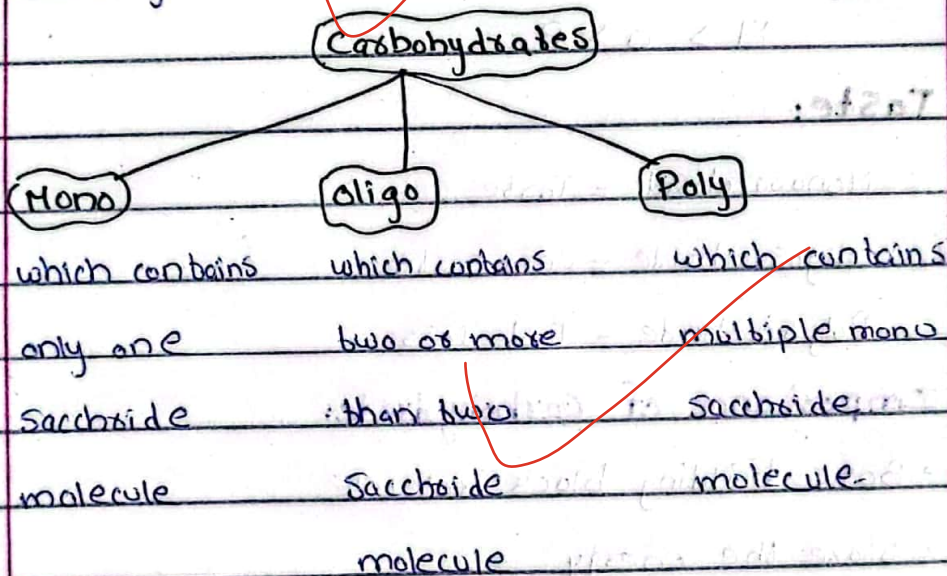 Carbohydrates
Mono
which contains
only one
Sacchride
molecule
Oligo
which contains
two or more
than two
Sacchride
molecule
Poly
which contains
multiple mono
Sacchride
molecule